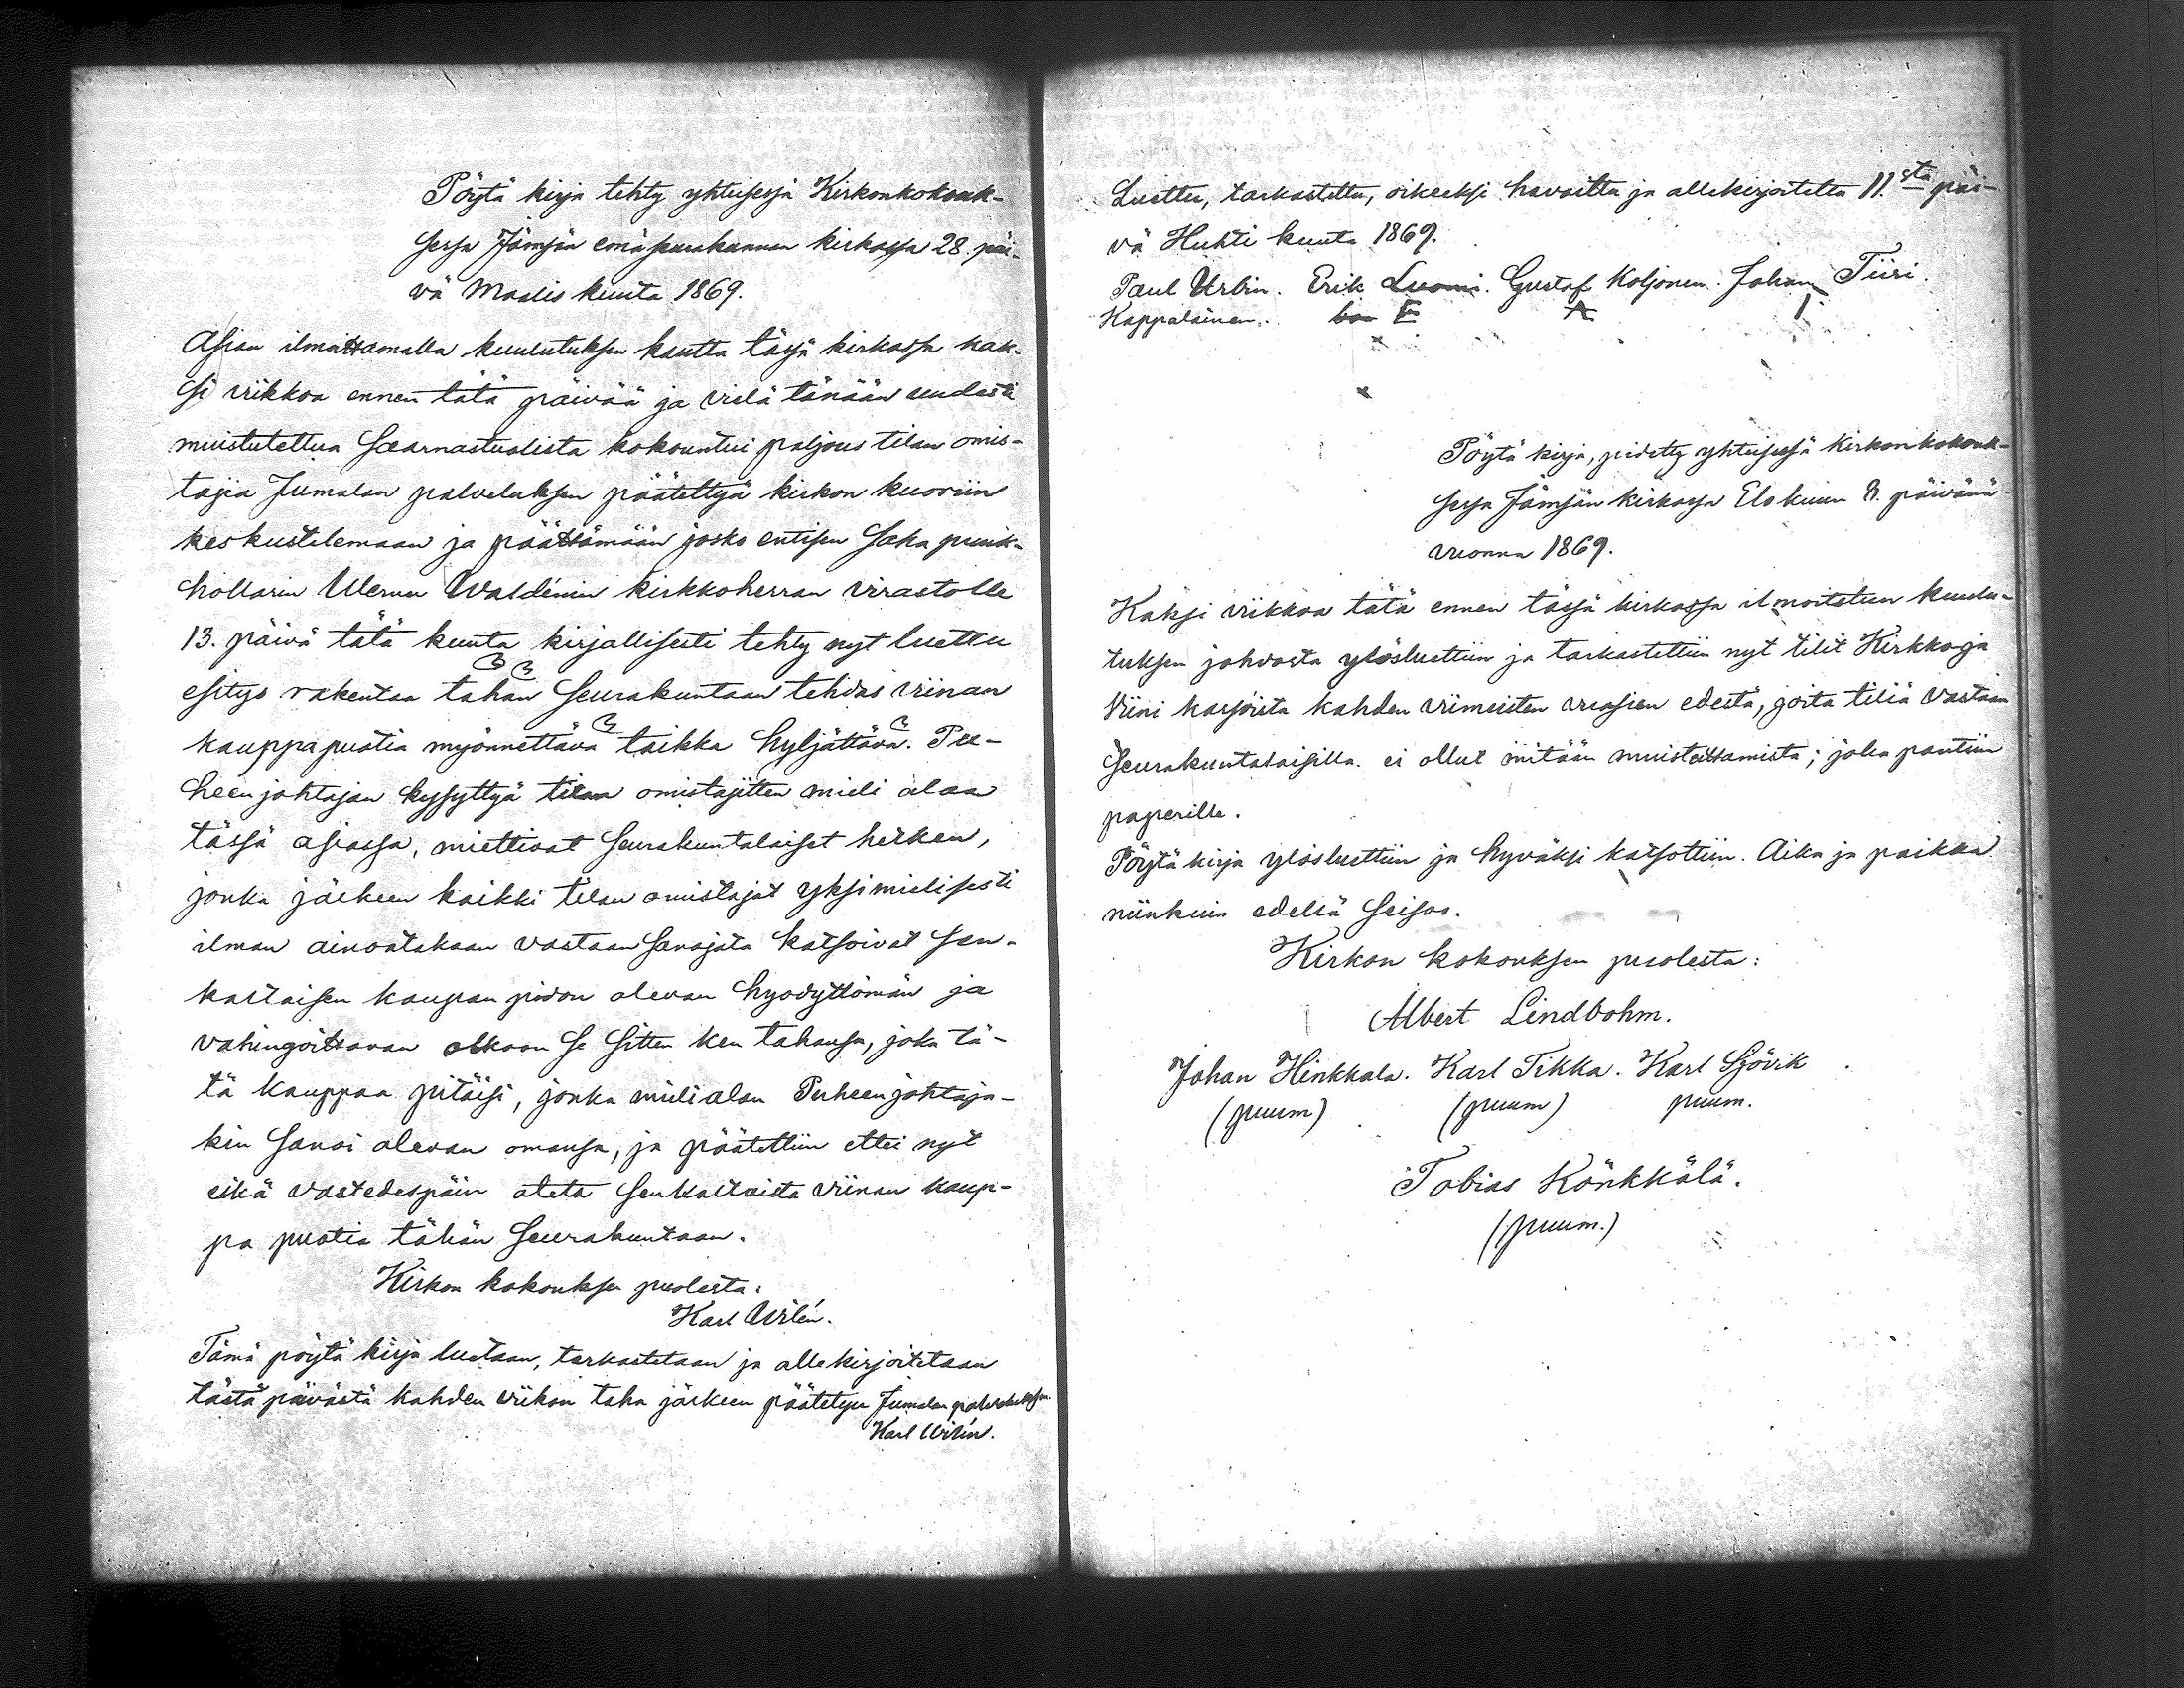 Pöytä kirja tehty yhteisessä Kirkonkokouk-
sessa Jämsän emäseurakunnan kirkossa 28. päi-
vä Maalis kuuta 1869.
Asian ilmoittamalla kuulutuksen kautta tässä kirkossa kak-
si viikkoa ennen tätä päivää ja vielä tänään uudesti
muistutettua Saarnastuolista kokountui paljous tilan omis-
tajia Jumalan palveluksen päätettyä kirkon kuoriin
keskustelemaan ja päättämään josko entisen Saha puuk-
hollarin Werner Waldénin kirkkoherran virastolle
13. päivä tätä kuuta kirjallisesti tehty nyt luettu
esitys rakentaa tähän Seurakuntaan tehdas viinan
kauppapuotia myönnettävä taikka hyljättävä. Pu-
heenjohtajan kysyttyä tilan omistajitten mieli alaa
tässä asiassa, miettivat Seurakuntalaiset hetken,
jonka jälkeen kaikki tilan omistajat yksimielisesti
ilman ainoatakaan vastaan Sanojata katsoivat sen-
kaltaisen kaupan pidon olevan hyödyttömän ja
vahingoittavan olkoon se sitten ken tahansa, joka tä-
tä kauppaa pitäisi, jonka mielialan Puheenjohtaja-
kin Sanoi olevan omansa, ja päätettiin ettei nyt
eikä vastedespäin oteta senkaltaista viinan kaup-
pa puotia tähän Seurakuntaan.
Kirkon kokouksen puolesta:
Karl Wilén.
Tämä pöytä kirja luetaan, tarkastetaan ja allekirjoitetaan
tästä päivästä kahden viikon taka jälkeen päätetyn Jumalan palveluksen
Karl Wilén.
Luettu, tarkastettu, oikeaksi havaittu ja allekirjoitettu 11.sta päi-
vä Huhti kuuta 1869.
Paul Urbin. Erik Luomi. Gustaf Koljonen. Johan Tiiri.
Kappalainen.
Pöytä kirja, pidetty yhteisessä Kirkonkokouk-
sessa Jämsän kirkossa Elokuun 8. päivänä
vuonna 1869.
Kaksi viikkoa tätä ennen tässä kirkossa ilmoitetun kuulu-
tuksen johdosta ylösluettiin ja tarkastettiin nyt tilit Kirkko ja
Viini kassoista kahden viimeisten vuosien edestä, joita tiliä vastaan
Seurakuntalaisilla ei ollut mitään muistuttamista; joka pantiin
paperille.
Pöytä kirja ylösluettiin ja hyväksi katsottiin. Aika ja paikka
niinkuin edellä Seisoo.
Kirkon kokouksen puolesta:
Albert Lindbohm.
Johan Hinkkala. Karl Tikka. Karl Sjövik
(puum) (puum) puum.
Tobias Könkkälä.
(puum.)